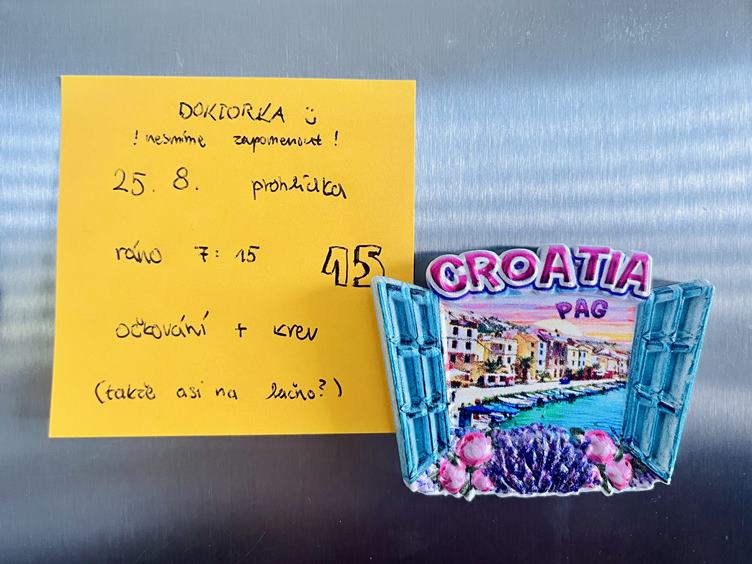 DOKTORKA :)
! nesmíme zapomenout !
25. 8. prohlídka
ráno 7:15 15
očkování + krev
(takže asi na lačno?)
CROATIA
PAG